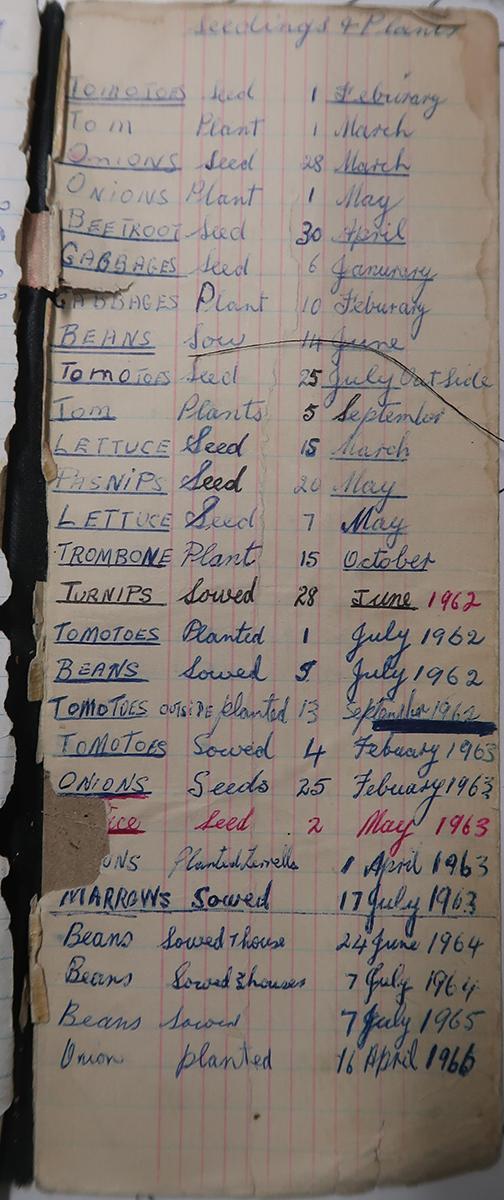 Seedings & Plants
TOMOTOES Seed 1 Feburary
Tom Plant 1 March
ONIONS Seed 28 March
ONIONS Plant 1 May
BEETROOT Seed 30 April
GABBAGES Seed 6 Janurary
GABBAGES Plant 10 Feburary
BEANS Sow 14 June
TomoTOES Seed 25 July Out Side
Tom Plants 5 September
LETTUCE Seed 15 March
PASNIPS Seed 20 May
LETTUCE Seed 7 May
TROMBONE Plant 15 October
TURNIPS Sowed 28 June 1962
TOMOTOES Planted 1 July 1962
BEANS Sowed 5 July 1962
TOMOTOES OUTSIDE planted 13 September 1962
TOMOTOES Sowed 4 Febuary 1963
ONIONS Seeds 25 Febuary 1963
uce Seed 2 May 1963
IONS Planted 1 April 1963
MARROWS Sowed 17 July 1963
Beans Sowed 1 house 24 June 1964
Beans Sowed 3 houses 7 July 1964
Beans Sowed 7 July 1965
Onion planted 16 April 1966